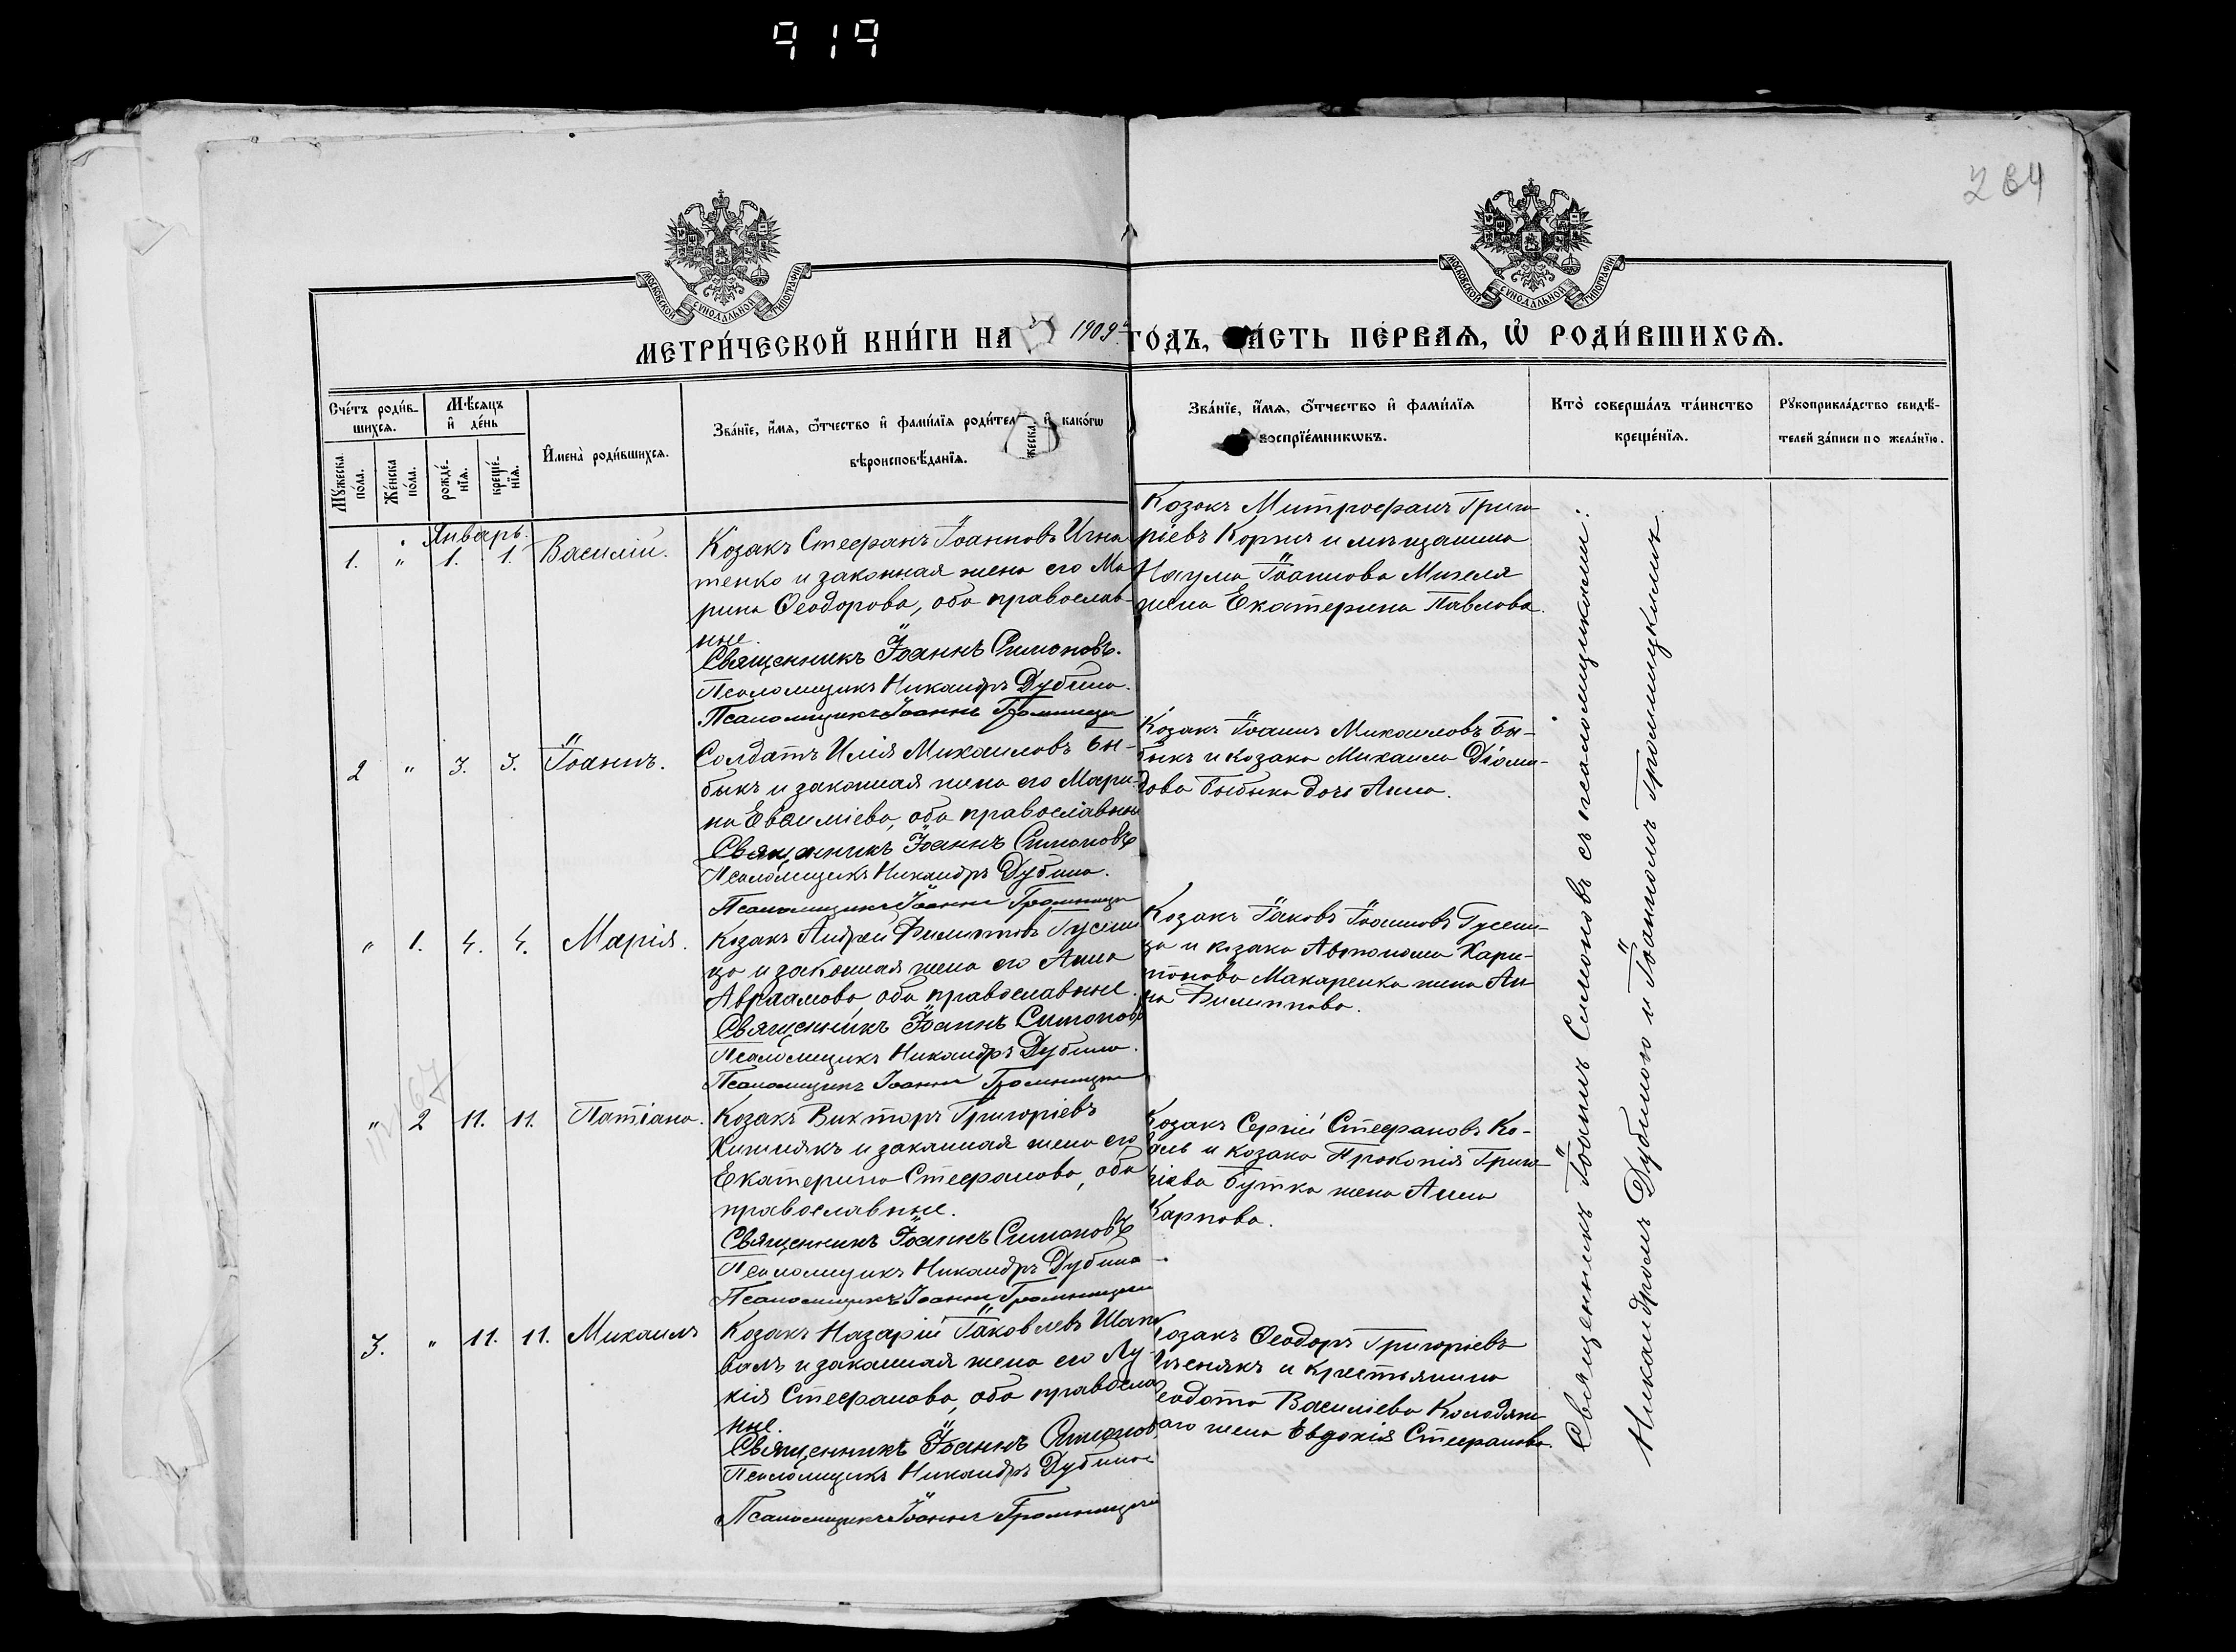 919
264
МОСКОВСКОЙ СУНОДАЛЬНОЙ ТИПОГРАФІИ
МОСКОВСКОЙ СУНОДАЛЬНОЙ ТИПОГРАФІИ
МЕТРИ́ЧЕСКОЙ КНИ́ГИ НА 1909 ГО́ДЪ, ЧА́СТЬ ПЕ́РВАѦ, Ѡ҆ РОДИ́ВШИХСѦ.
Сче́тъ роди́в-
шихсѧ.
Мѣ́сяцъ
и҆ де́нь
Му́жеска по́ла.
Же́нска по́ла.
рожде́-
нїѧ.
креще́-
нїѧ.
И҆мена̀ роди́вшихсѧ.
Зва́нїе, и҆́мѧ, ѻ҆́тчество и҆ фами́лїѧ роди́тел и҆ како́гѡ
вѣроисповѣ́данїѧ.
жеска
Зва́нїе, и҆́мѧ, ѻ҆́тчество и҆ фами́лїѧ
воспрїе́мникѡвъ.
Кто̀ соверша́лъ та́инство
креще́нїѧ.
Рꙋкоприкла́дство свидѣ́-
телей за́писи по жела́нїю.
Январь.
1. " 1. 1. Василій.
Козакъ Стефанъ Іоанновъ Игна
тенко и законная жена его Ма
рина Ѳеодорова, оба православ-
ные.
Священникъ Іоаннъ Симоновъ.
Псаломщикъ Никандръ Дубина.
Псаломщикъ Іоаннъ Громницки
Козакъ Митрофанъ Григо
ріевъ Коржъ и мѣщанина
Наума Іоаннова Мизеля
жена Екатерина Павлова.
2 " 3. 3. Іоаннъ.
Солдатъ Илія Михаиловъ Бы-
быкъ и законная жена его Мари-
на Евѳиміева, оба православные
Священникъ Іоаннъ Симоновъ
Псаломщикъ Никандръ Дубина.
Псаломщикъ Іоаннъ Громницки
Козакъ Іоаннъ Михаиловъ Бы-
быкъ и козака Михаила Діоми-
дова Быбыка дочь Анна.
" 1. 4. 4. Марія.
Козакъ Андрей Филипповъ Гусени
ца и законная жена его Анна
Авраамова, оба православные.
Священникъ Іоаннъ Симоновъ
Псаломщикъ Никандръ Дубина.
Псаломщикъ Іоаннъ Громницки
Козакъ Іаковъ Іоанновъ Гусени-
ца и козака Автонома Хари-
тонова Макаренка жена Ан
на Филиппова.
" 2 11. 11. Татіана.
Козакъ Викторъ Григоріевъ
Хижнякъ и законная жена его
Екатерина Стефанова, оба
православные.
Священникъ Іоаннъ Симоновъ
Псаломщикъ Никандръ Дубина
Псаломщикъ Іоаннъ Громницки
Козакъ Сергій Стефановъ Ко-
валь и козака Прокопія Григо-
ріева Бутка жена Анна
Карпова.
3. " 11. 11. Михаилъ
Козакъ Назарій Іаковлевъ Шапо
валъ и законная жена его Лу-
кія Стефанова, оба православ
ные.
Священникъ Іоаннъ Симоновъ
Псаломщикъ Никандръ Дубина
Псаломщикъ Іоаннъ Громницкій
Козакъ Ѳеодоръ Григоріевъ
и крестьянина
Ѳеодота Василіева Колодяж
аго жена Евдокія Стефанова.
Священникъ Іоаннъ Симоновъ съ псаломщиками:
Никандромъ Дубиною и Іоанномъ Громницкимъ.